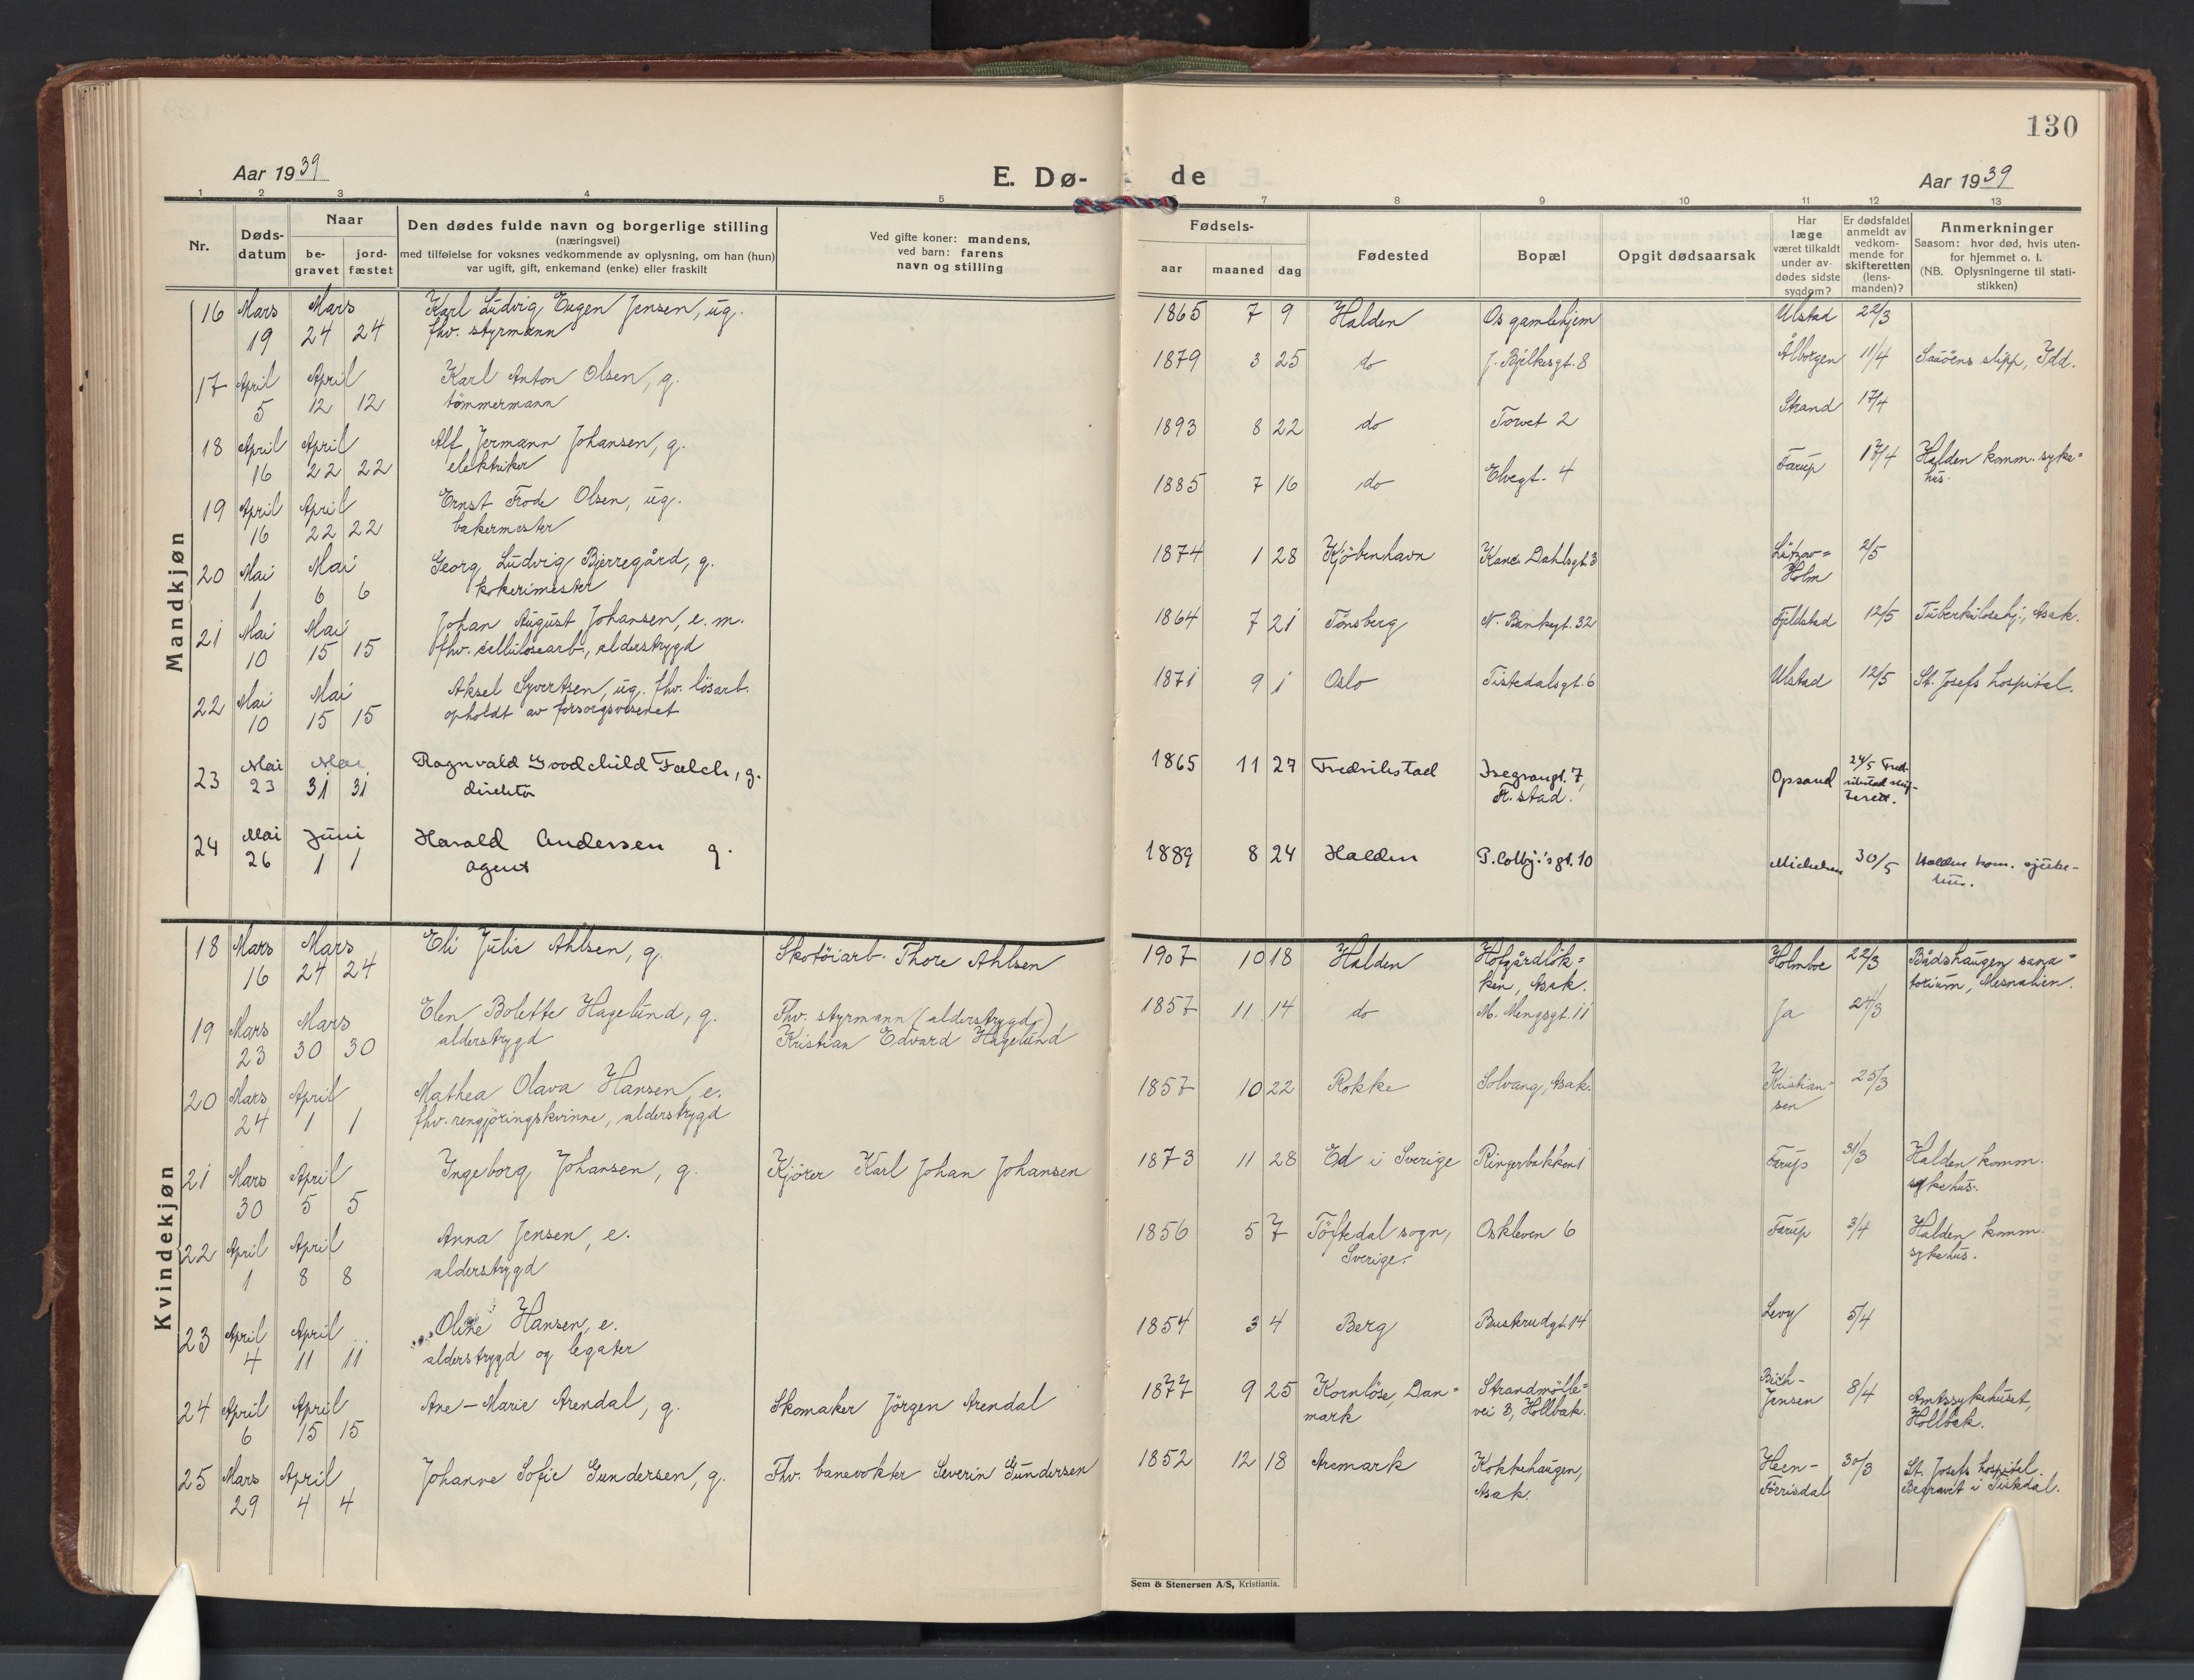 130
Aar 1939
E. Dø-
de
Aar 1939
1 2 3 4 5 7 8 9 10 11 12 13
Nr.
Døds-
datum
Naar
be-
gravet
jord-
fæstet
Den dødes fulde navn og borgerlige stilling
(næringsvei)
med tilføielse for voksnes vedkommende av oplysning, om han (hun)
var ugift, gift, enkemand (enke) eller fraskilt
Ved gifte koner: mandens,
ved barn: farens
navn og stilling
Fødsels-
aar
maaned
dag
Fødested
Bopæl
Opgit dødsaarsak
Har
læge
været tilkaldt
under av-
dødes sidste
sygdom?
Er dødsfaldet
anmeldt av
vedkom-
mende for
skifteretten
(lens-
manden)?
Anmerkninger
Saasom: hvor død, hvis uten-
for hjemmet o. l.
(NB. Oplysningerne til stati-
stikken)
Mandkjøn
16 Mars Mars Karl Ludvig Eugen Jensen, ug. 1865 7 9 Halden Os gamlehjem Ulstad 22/3
19 24 24 fhv. styrmann
17 April April Karl Anton Olsen, g. 1879 3 25 do J. Bjelkesgt. 8 Ålborgen 11/4 Sauöens slipp, Idd.
5 12 12 tömmermann
18 April April Alf Jermann Johansen, g. 1893 8 22 do Torvet 2 Strand 17/4
16 22 22 elektriker
19 April April Ernst Frode Olsen, ug. 1885 7 16 do Elvegt. 4 Farup 17/4 Halden komm. syke=
hus.
16 22 22 bakermester
20 Mai Mai Georg Ludvig Bjerregård, g. 1874 1 28 Kjöbenhavn Kanc. Dahlsgt. 3 Lützow= 2/5
Holm
1 6 6 kokerimester
21 Mai Mai Johan August Johansen, e. m. 1864 7 21 Tönsberg N. Bankegt. 32 Fjeldstad 12/5 Tuberkulosehj., Asak.
10 15 15 fhv. cellulosearb., alderstrygd
22 Mai Mai Aksel Syvertsen, ug. fhv. lösarb. 1871 9 1 Oslo Tistedalsgt. 6 Ulstad 12/5 St. Josefs hospital.
10 15 15 opholdt av forsorgsvesenet
23 Mai Mai Ragnvald Goodchild Falch, g. 1865 11 27 Fredrikstad Isegrangt. 7, Opsand 24/5 Fred-
rikstad skif-
terett.
23 31 31 direktör F. stad.
24 Mai Juni Harald Andersen g. 1889 8 24 Halden P. Colbj.'s gt. 10 Michelsen 30/5 Halden kom. sjuke-
hus.
26 1 1 agent
Kvindekjøn
18 Mars Mars Eli Julie Ahlsen, g. Skotöiarb. Thore Ahlsen 1907 10 18 Halden Hofgårdlök= Holmboe 22/3 Bådshaugen sana=
16 24 24 ken, Asak. torium, Mesnalien.
19 Mars Mars Elen Bolette Hagelund, g. Fhv. styrmann (alderstrygd) 1857 11 14 do M. Mengsgt. 11 Ja 24/3
23 30 30 alderstrygd Kristian Edvard Hagelund
20 Mars April Mathea Olava Hansen, e. 1857 10 22 Rokke Solvang, Asak. Kristian= 25/3
sen
24 1 1 fhv. rengjöringskvinne, alderstrygd
21 Mars April Ingeborg Johansen, g. Kjörer Karl Johan Johansen 1873 11 28 Ed i Sverige Ringerbakken 1 Farup 31/3 Halden komm.
sykehus.
30 5 5
22 April April Anna Jensen, e. 1856 5 7 Töftedal sogn, Oskleven 6 Farup 3/4 Halden komm.
1 8 8 alderstrygd Sverige. sykehus.
23 April April Oline Hansen, e. 1854 3 4 Berg Buskrudgt. 14 Levy 5/4
4 11 11 alderstrygd og legater
24 April April Ane-Marie Arendal, g. Skomaker Jörgen Arendal 1877 9 25 Kornlöse, Dan= Strandmölle= Brich- 8/4 Amtssykehuset,
6 15 15 mark vei 3, Hollbæk. Jensen Hollbæk.
25 Mars April Johanne Sofie Gundersen, g. Fhv. banevokter Severin Gundersen 1852 12 18 Aremark Kokkehaugen, Heen- 30/3 St. Josefs hospital.
29 4 4 Asak. Förrisdal Begravet i Tistedal.
Sem & Stenersen A/S, Kristiania.